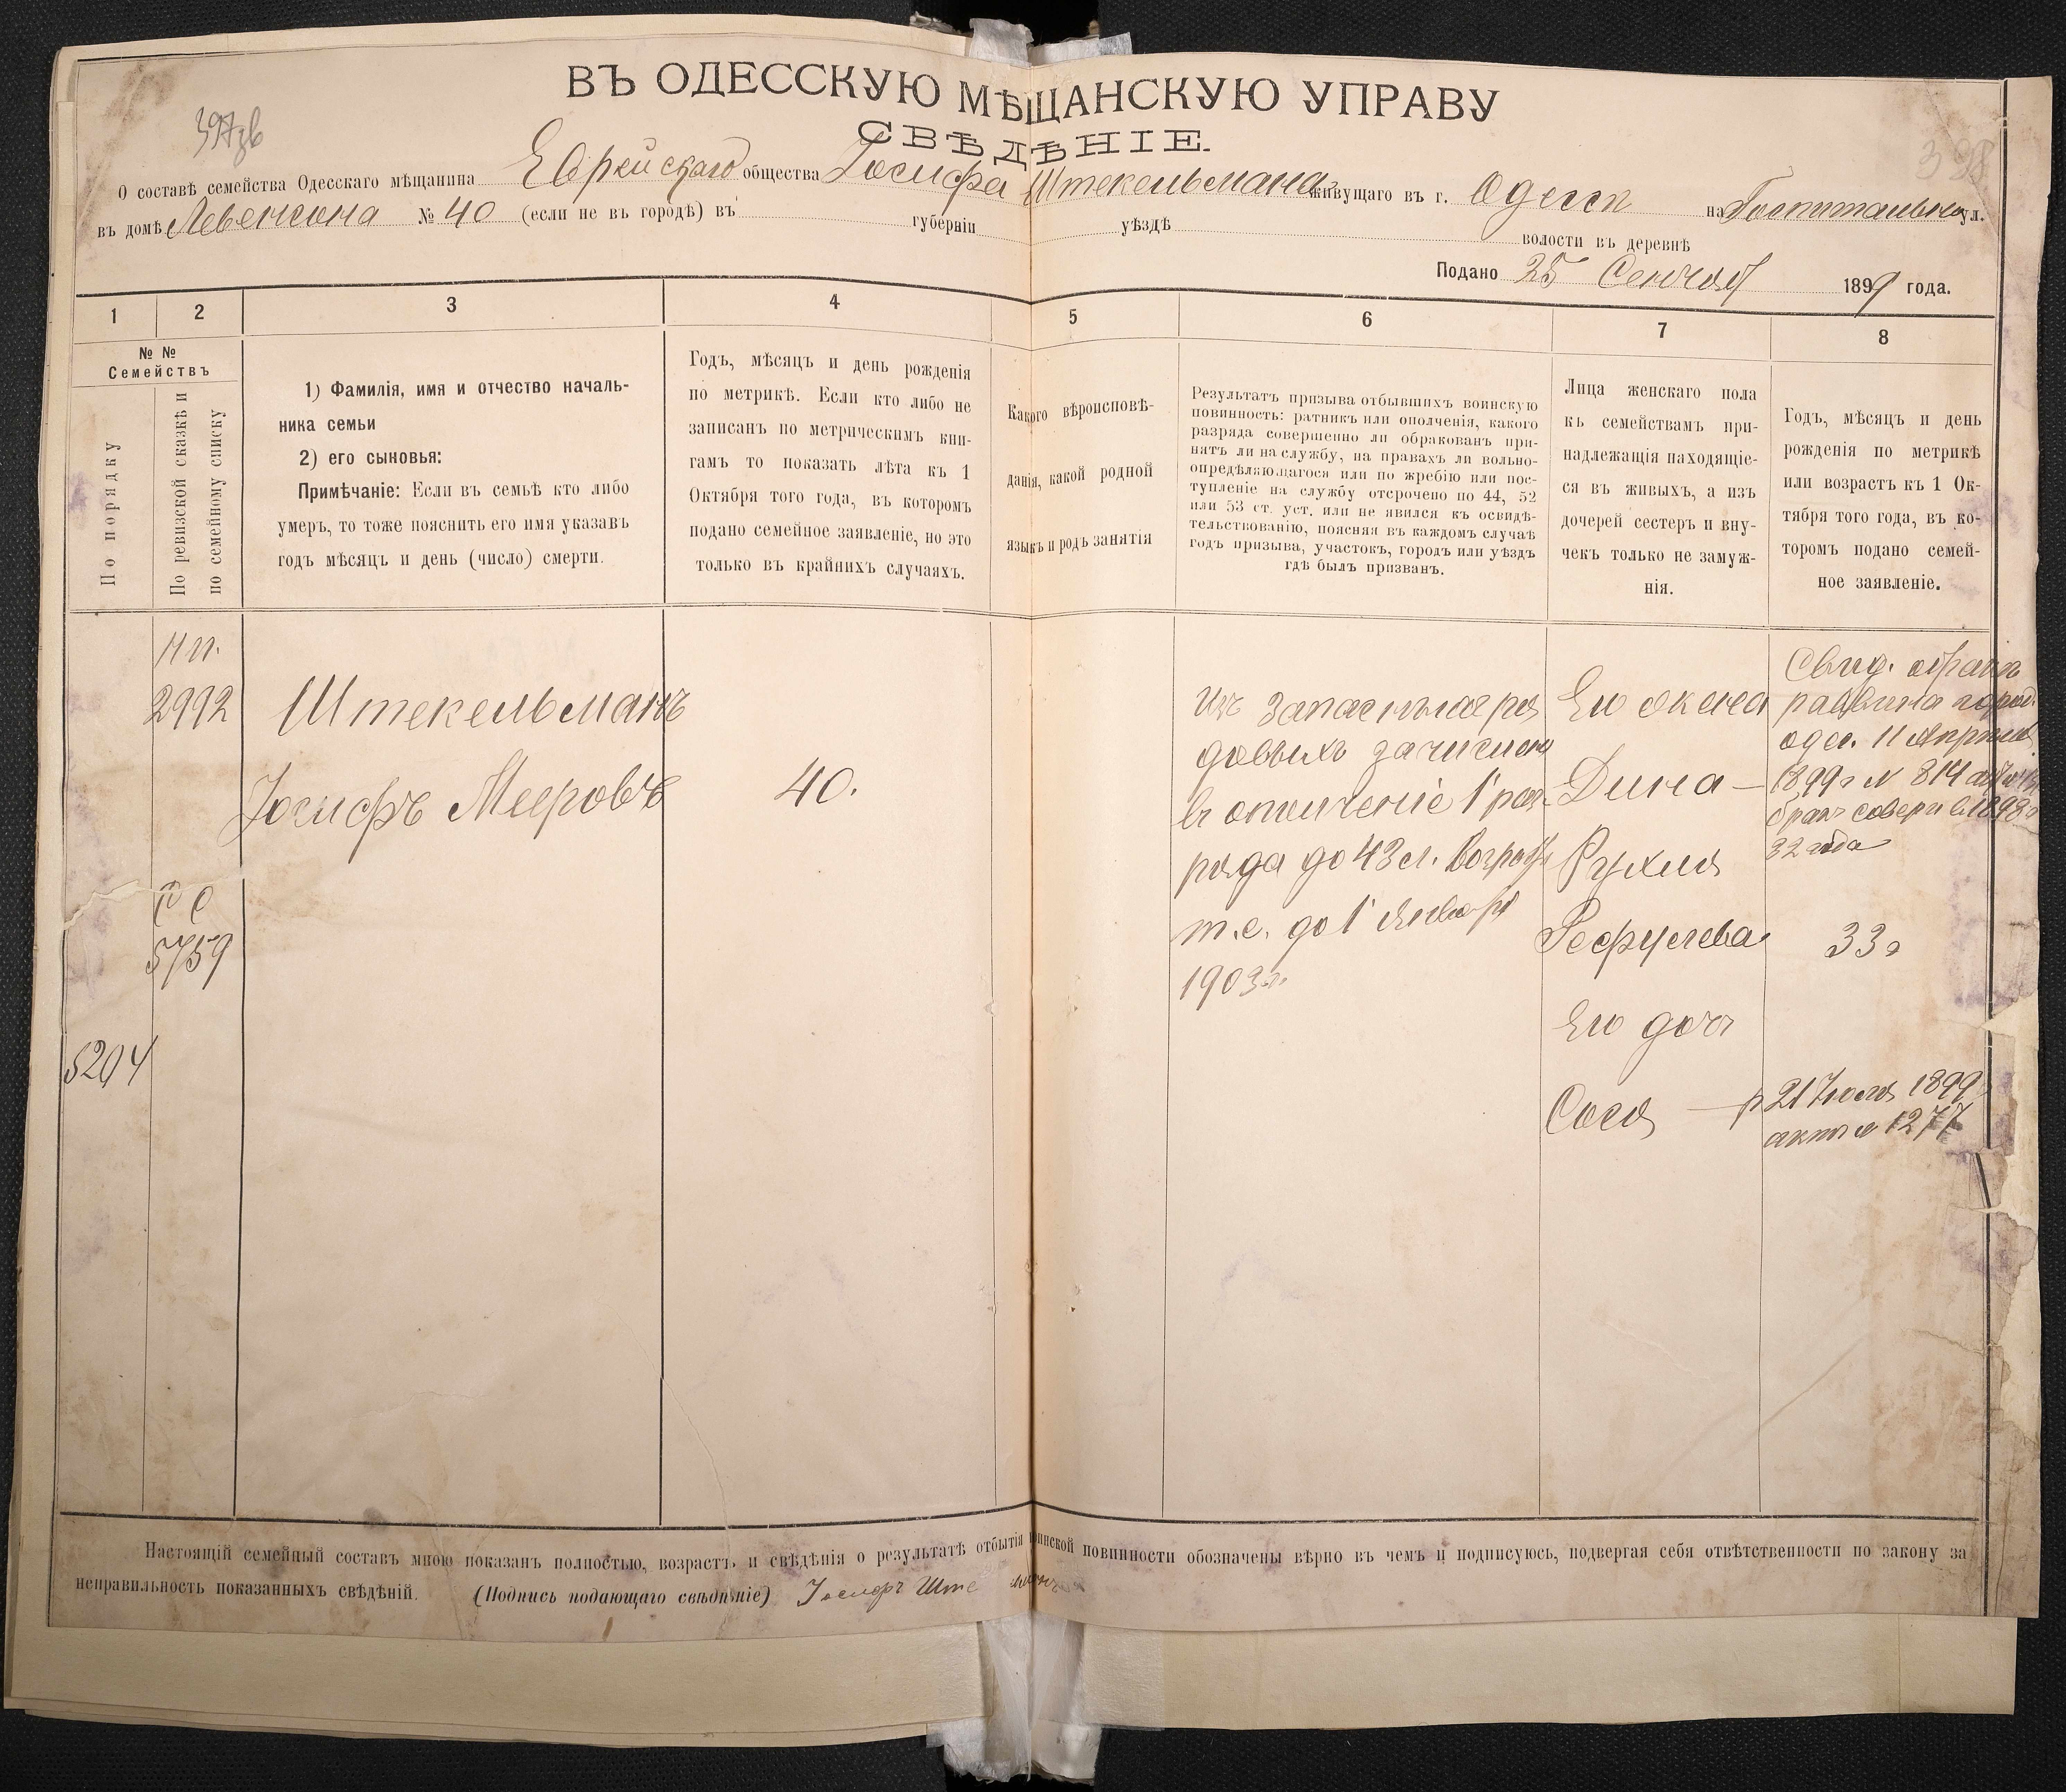 ВЪ ОДЕССКУЮ МѢЩАНСКУЮ УПРАВУ
СВѢДѢНІЕ.
О составѣ семейства Одесскаго мѣщанина Еврейскаго общества Іосифа Штекельмана живущаго въ г. Одессѣ на Госпитальной ул.
въ домѣ Левенсона № 40 (если не въ городѣ) въ губерніи уѣздѣ волости въ деревнѣ
Подано 25 Сентяб 1899 года.
1 2 3 4 5 6 7 8
№ №
Семействъ
По порядку
По ревизской сказкѣ и
по семейному списку
1) Фамилія, имя и отчество началь-
ника семьи
2) его сыновья:
Примѣчаніе: Если въ семьѣ кто либо
умеръ, то тоже пояснить его имя указавъ
годъ мѣсяцъ и день (число) смерти.
Годъ, мѣсяцъ и день рожденія
по метрикѣ. Если кто либо не
записанъ по метрическимъ кни-
гамъ то показать лѣта къ 1
Октября того года, въ которомъ
подано семейное заявленіе, но это
только въ крайнихъ случаяхъ.
Какого вѣроисповѣ-
данія, какой родной
языкъ и родъ занятія
Результатъ призыва отбывшихъ воинскую
повинность: ратникъ или ополченія, какого
разряда совершенно ли обракованъ при-
нятъ ли на службу, на правахъ ли вольно-
опредѣляющагося или по жребію или пос-
тупленіе на службу отсрочено по 44, 52
или 53 ст. уст. или не явился къ освидѣ-
тельствованію, поясняя въ каждомъ случаѣ
годъ призыва, участокъ, городъ или уѣздъ
гдѣ былъ призванъ.
Лица женскаго пола
къ семействамъ при-
надлежащія находящіе-
ся въ живыхъ, а изъ
дочерей сестеръ и вну-
чекъ только не замуж-
нія.
Годъ, мѣсяцъ и день
рожденія по метрикѣ
или возрастъ къ 1 Ок-
тября того года, въ ко-
торомъ подано семей-
ное заявленіе.
2992
Штекельманъ
Іосифъ Мееровъ
40.
СС
5759
5204
изъ запасныхъ ря
довыхъ зачислен
въ ополченіе 1 раз-
ряда до 43 л. возраста
т.е. до 1 Января
1903 г.
Его жена
Дина —
Рухля
Рефулева
Его дочь
Сося —
Свид. одесскаго
раввина город.
одес. 11 Апрѣля
1899 г № 814
бракъ соверш въ 1898 г
32 года
33 г
р 21 Іюля 1899
актъ № 1277
Настоящій семейный составъ мною показанъ полностью, возрастъ и свѣдѣнія о результатѣ отбытія воинской повинности обозначены вѣрно въ чемъ и подписуюсь, подвергая себя отвѣтственности по закону за
неправильность показанныхъ свѣдѣній. (Подпись подающаго свѣдѣніе) Іосифъ Ште